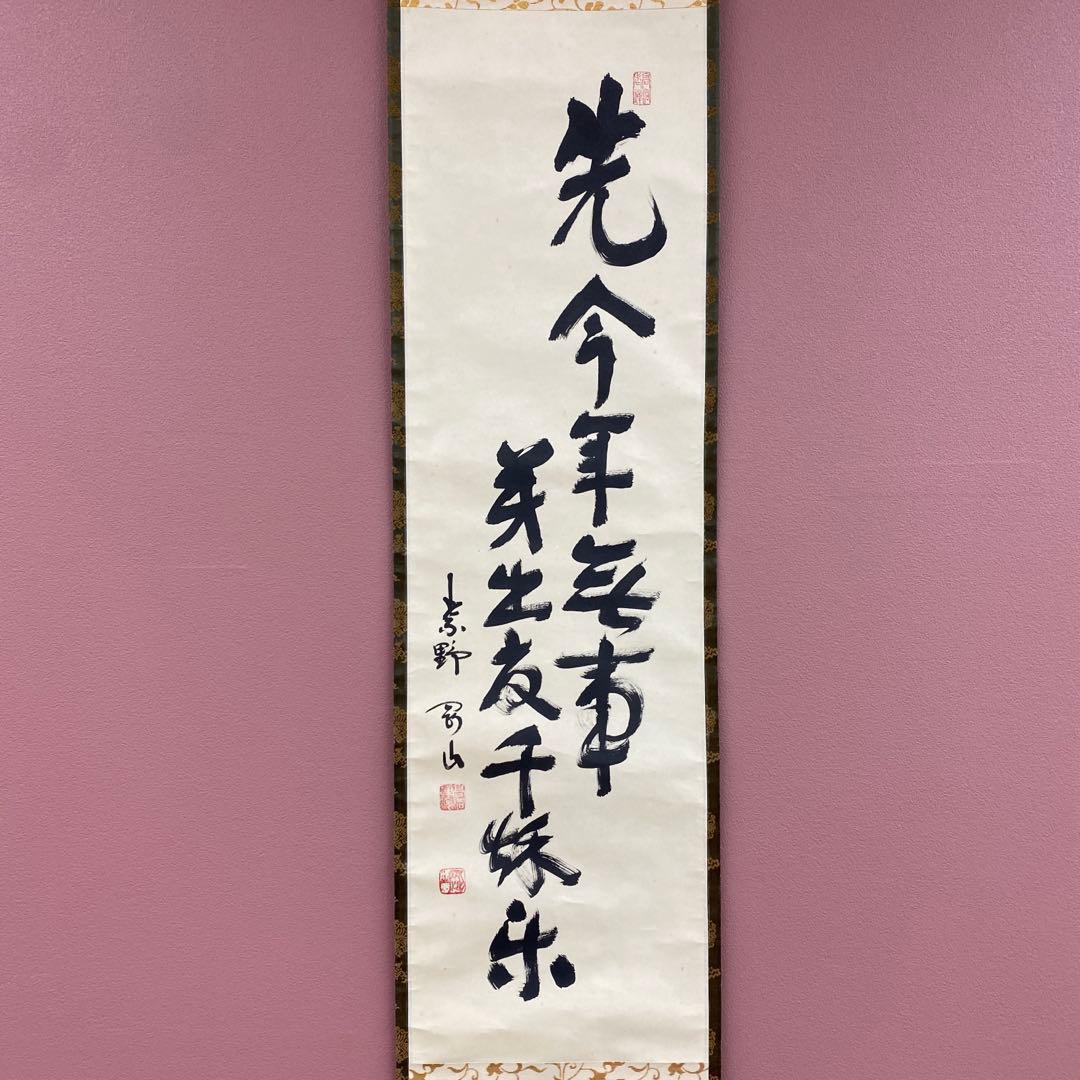 先今年無事
芽出度千秌楽
紫野